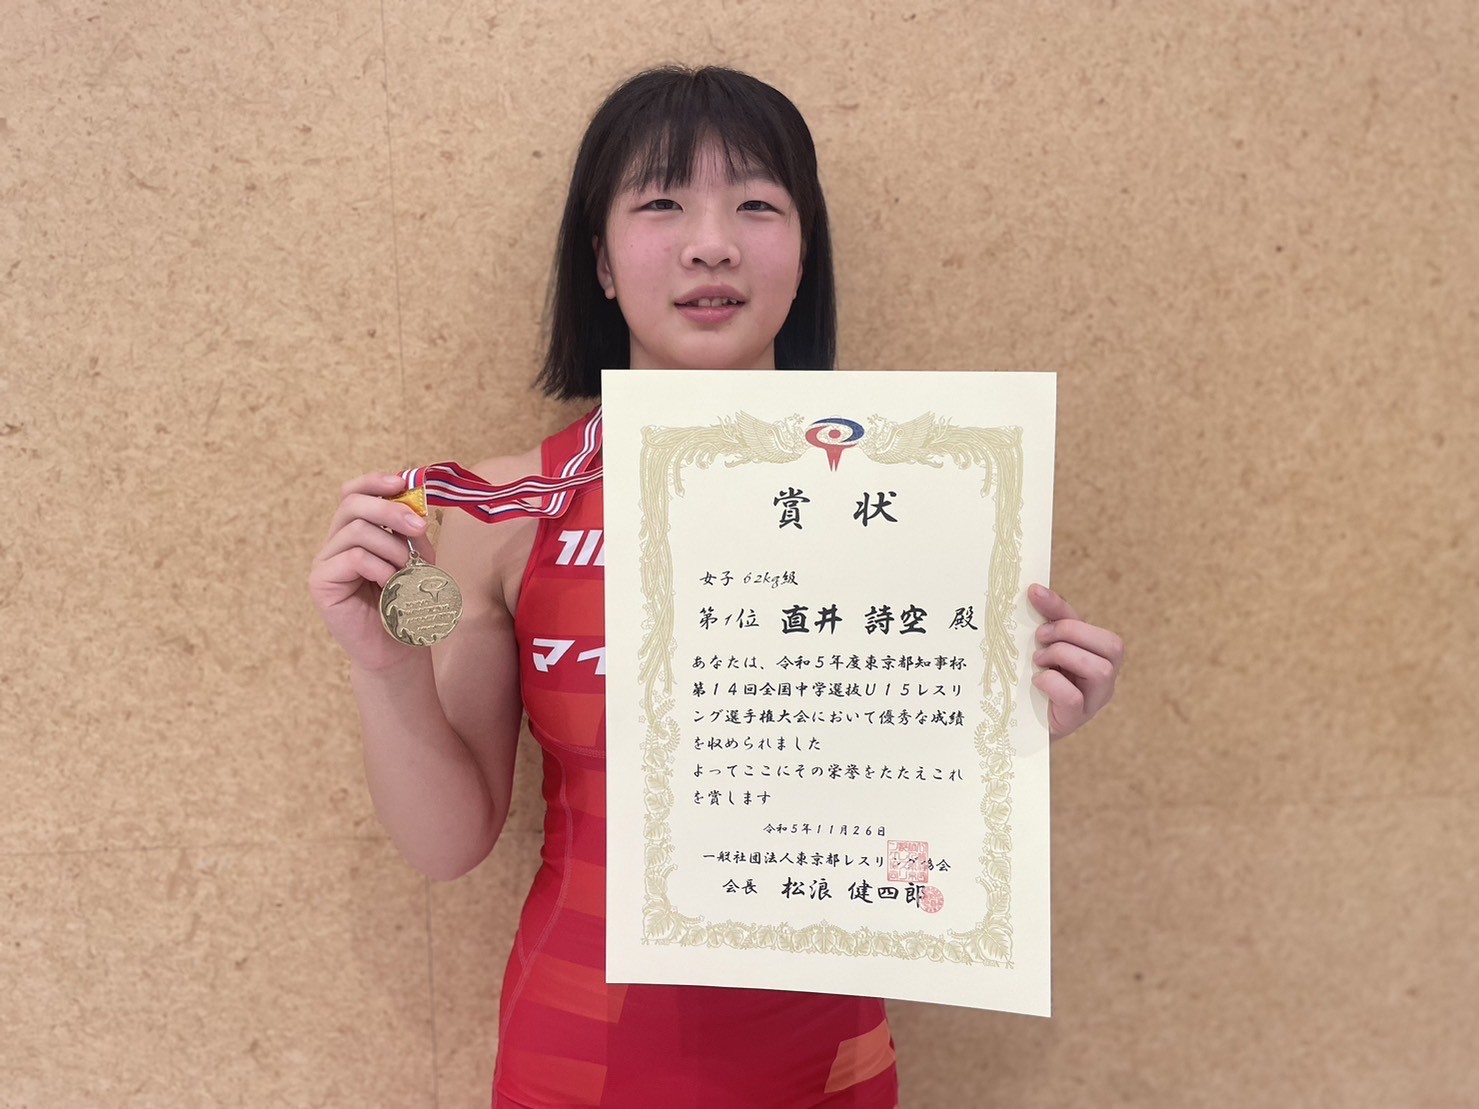 賞状
女子 62kg級
第1位 直井 詩空 殿
あなたは、令和5年度東京都知事杯
第14回全国中学選抜U15レスリ
ング選手権大会において優秀な成績
を収められました
よってここにその栄誉をたたえこれ
を賞します
令和5年11月26日
一般社団法人東京都レスリング協会
会長 松浪 健四郎
マイ